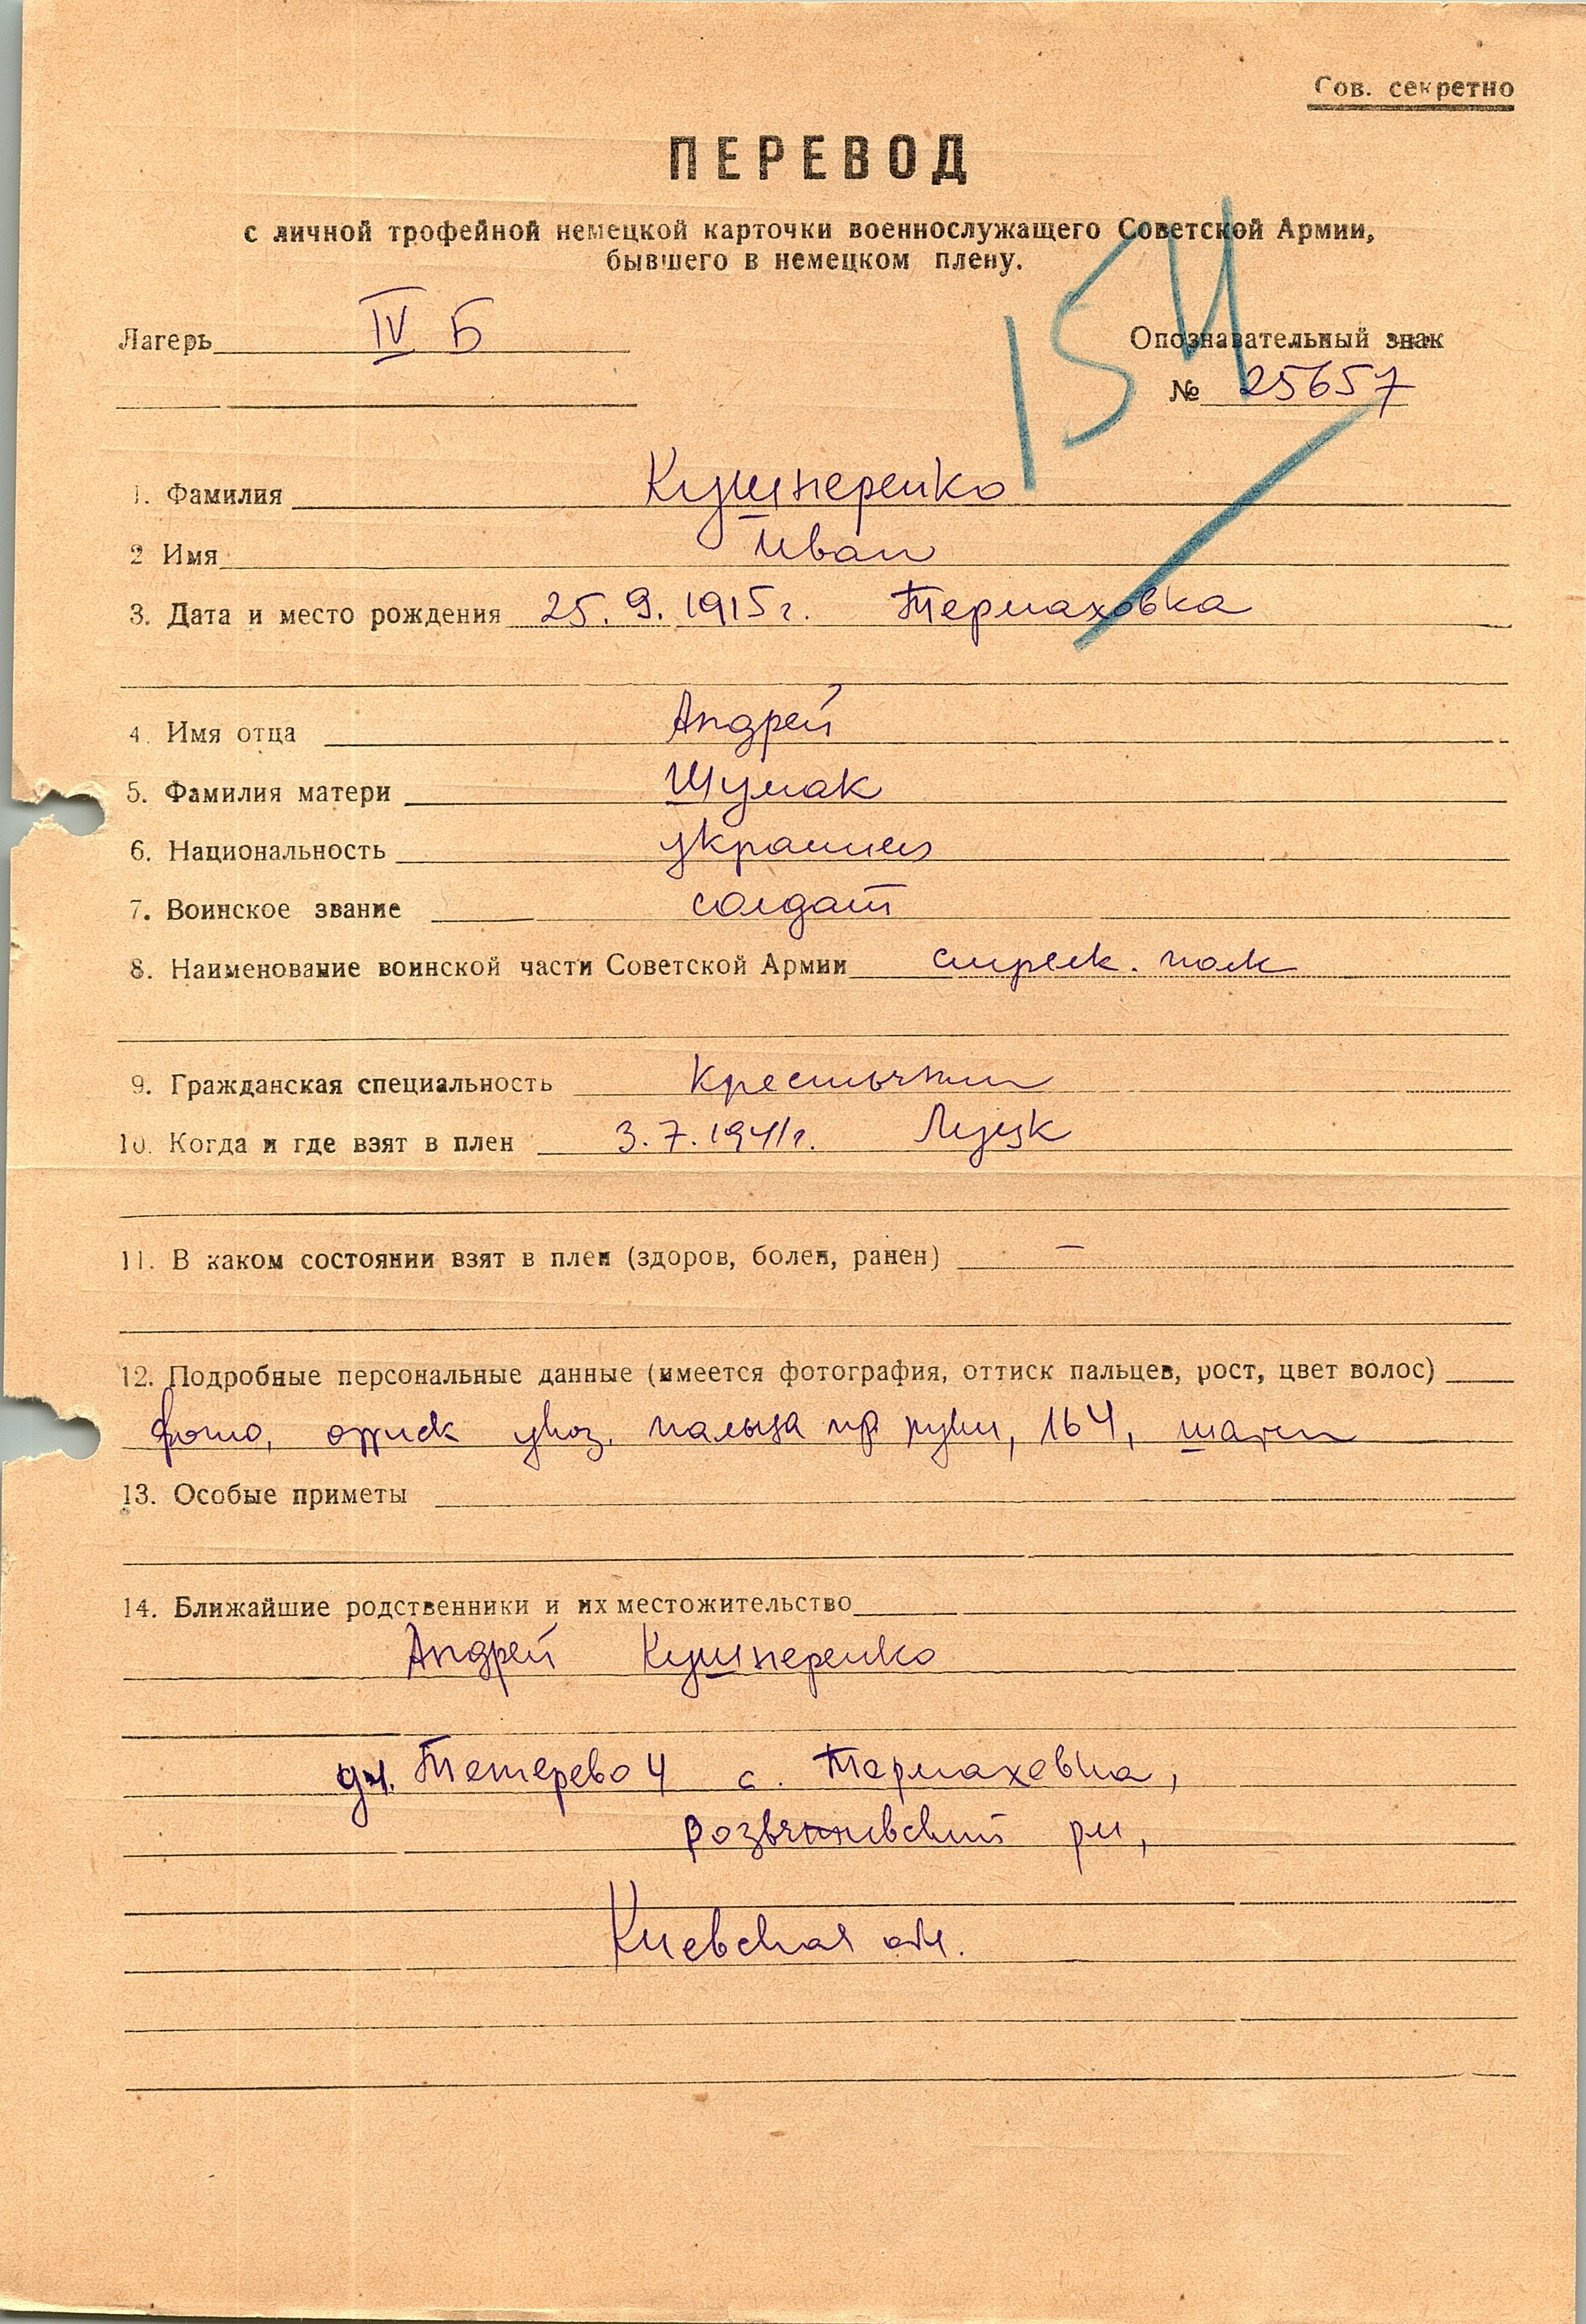 Сов. секретно
ПЕРЕВОД
с личной трофейной немецкой карточки военнослужащего Советской Армии,
бывшего в немецком плену.
Лагерь IV Б
Опознавательный знак
№ 25657
154
1. Фамилия Кушнеренко
2 Имя Иван
3. Дата и место рождения 25. 9. 1915 г. Термаховка
4. Имя отца Андрей
5. Фамилия матери Шумак
6. Национальность украинец
7. Воинское звание солдат
8. Наименование воинской части Советской Армии стрелк. полк
9. Гражданская специальность крестьянин
10. Когда и где взят в плен 3. 7. 1941 г. Луцк
11. В каком состоянии взят в плен (здоров, болен, ранен) —
12. Подробные персональные данные (имеется фотография, оттиск пальцев, рост, цвет волос)
фото, указ. пальца пр. руки, 164, шатен
13. Особые приметы
14. Ближайшие родственники и их местожительство
Андрей Кушнеренко
с. Термаховка,
рн,
Киевская обл.